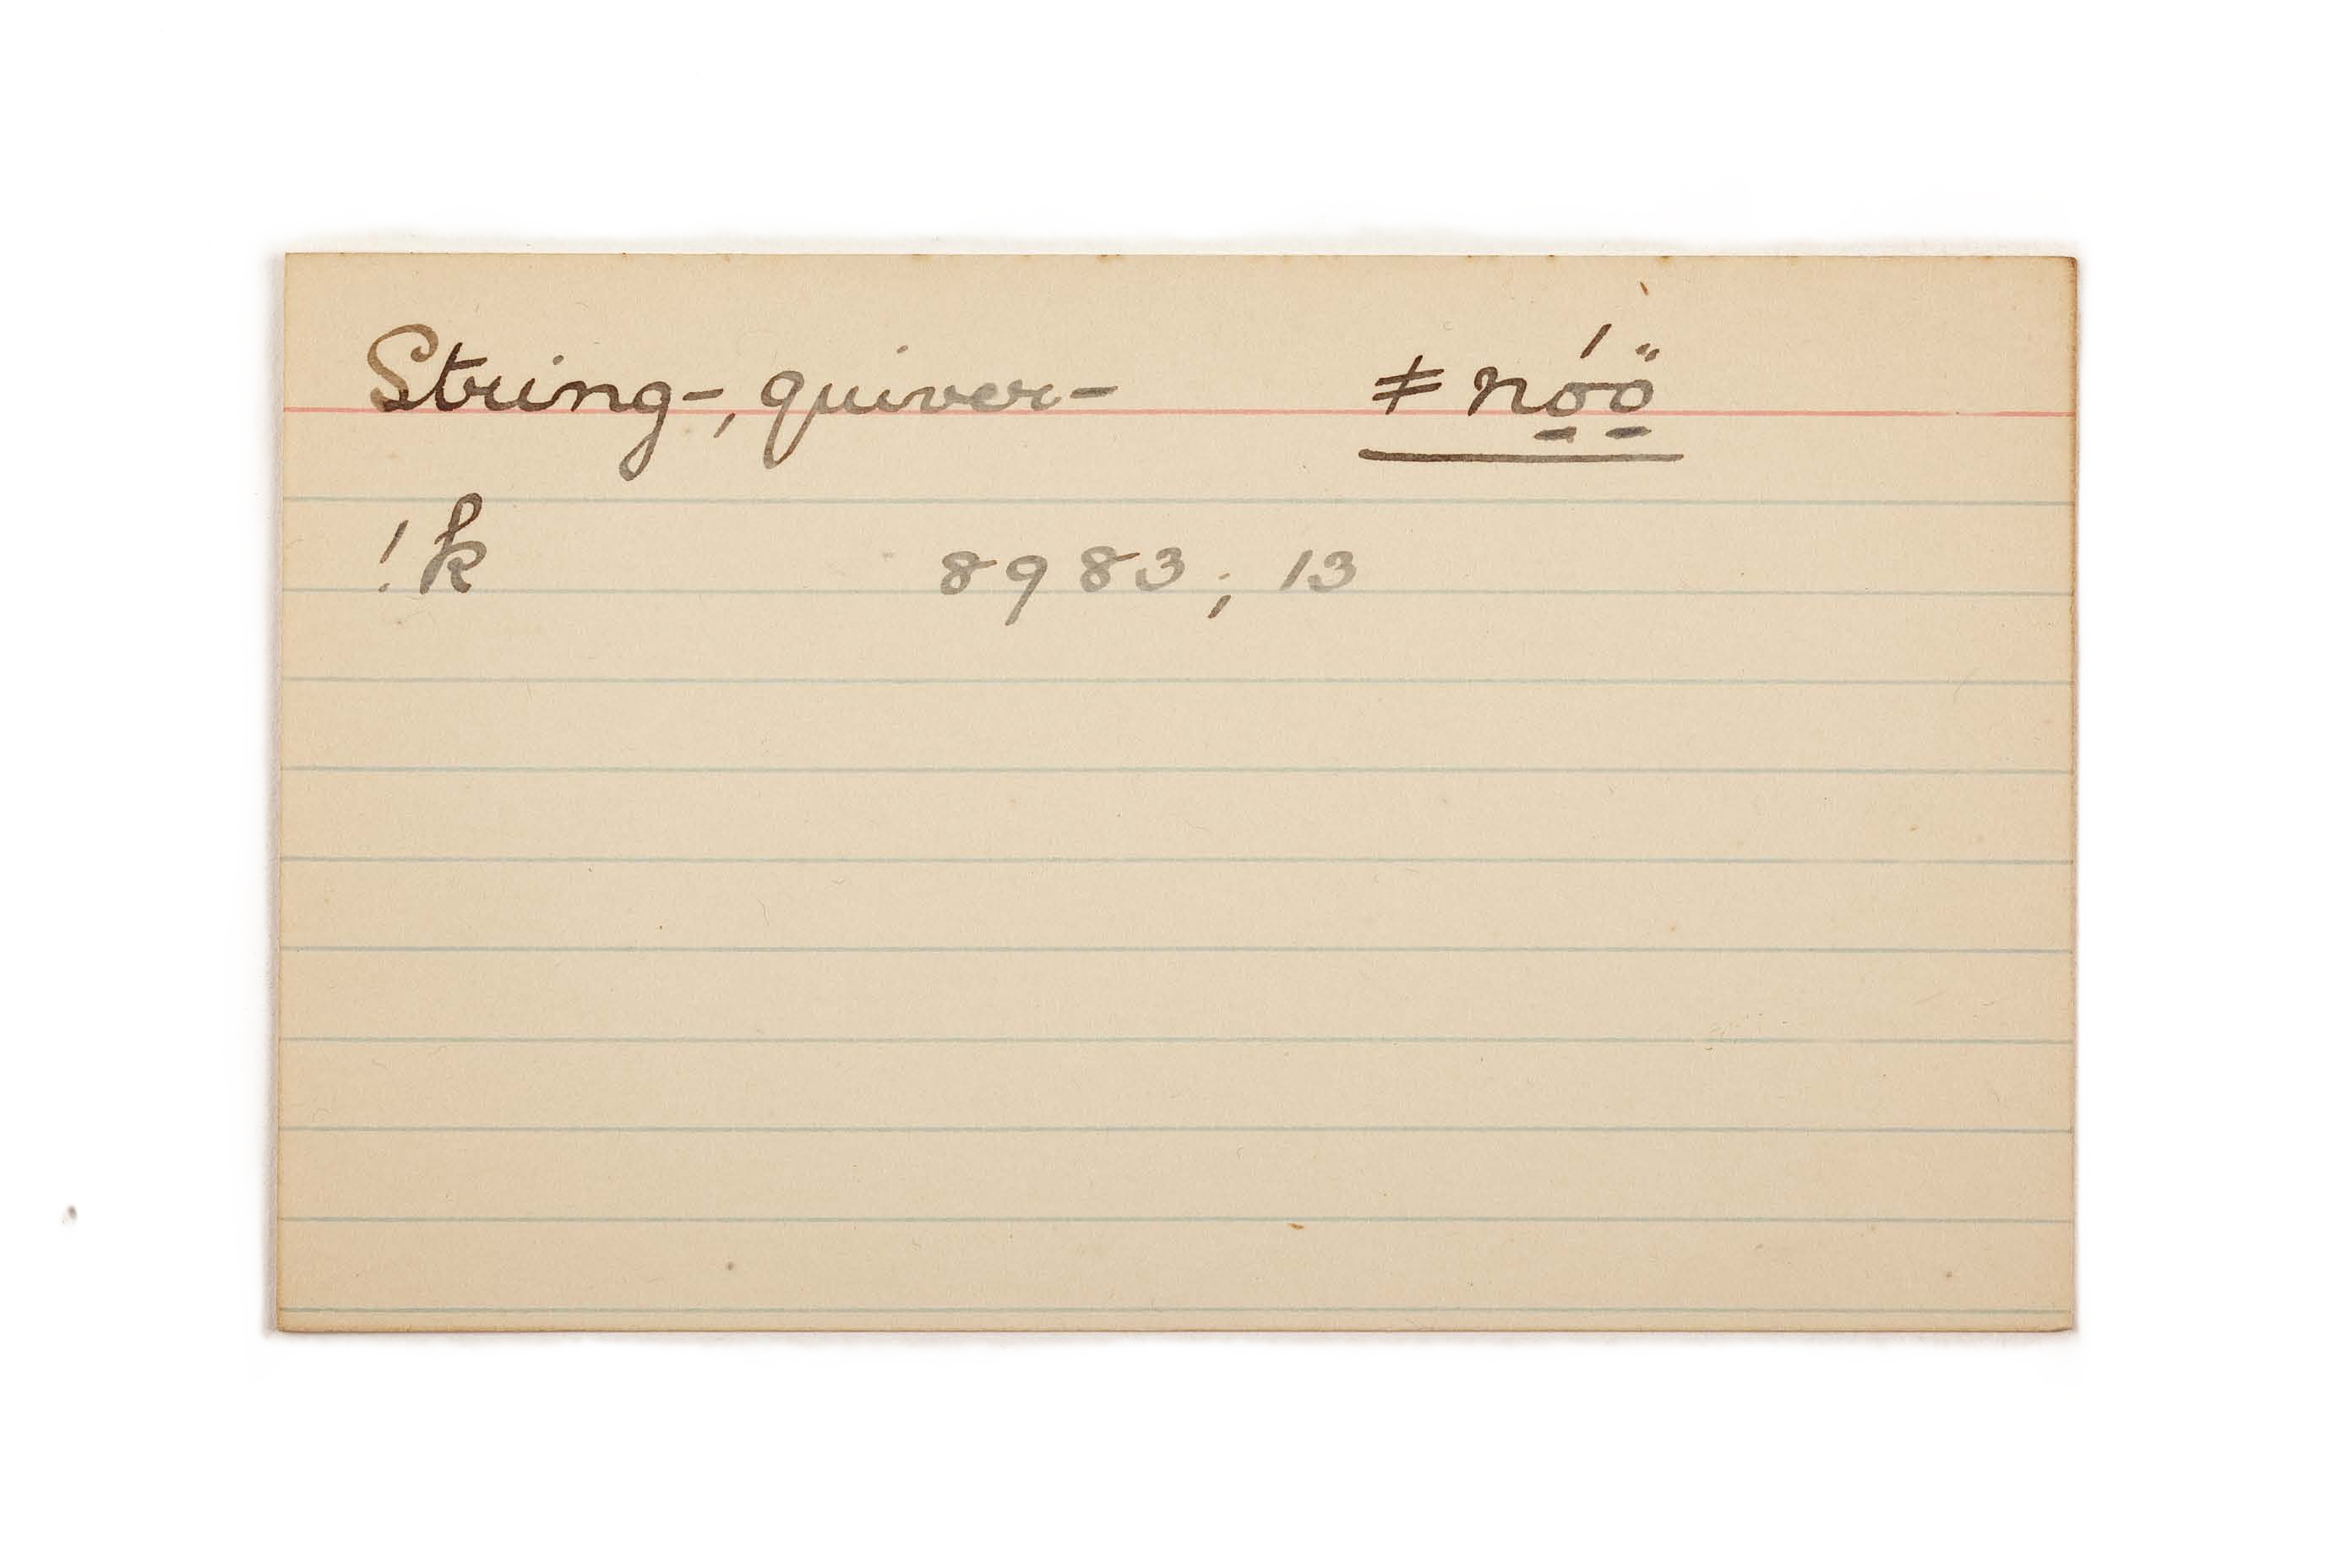 String-, quiver- ǂnó̱ö̱
!k 8983; 13